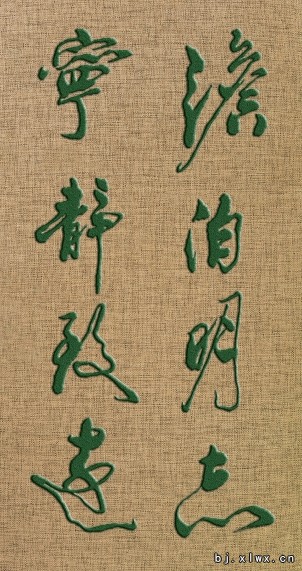 澹泊明志
寧靜致遠
bj.xlwx.cn